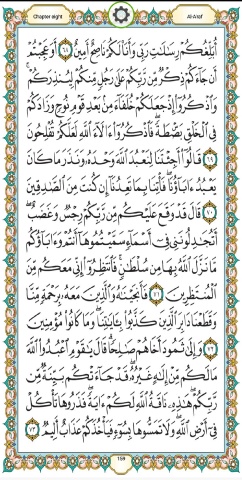 Chapter eight
Al-A'raf
أُبَلِّغُكُمْ رِسَٰلَٰتِ رَبِّى وَأَنَا۠ لَكُمْ نَاصِحٌ أَمِينٌ ٦٨ أَوَعَجِبْتُمْ
أَن جَآءَكُمْ ذِكْرٌ مِّن رَّبِّكُمْ عَلَىٰ رَجُلٍ مِّنكُمْ لِيُنذِرَكُمْ ۚ
وَٱذْكُرُوٓا۟ إِذْ جَعَلَكُمْ خُلَفَآءَ مِنۢ بَعْدِ قَوْمِ نُوحٍ وَزَادَكُمْ
فِى ٱلْخَلْقِ بَصْۜطَةً ۖ فَٱذْكُرُوٓا۟ ءَالَآءَ ٱللَّهِ لَعَلَّكُمْ تُفْلِحُونَ
٦٩ قَالُوٓا۟ أَجِئْتَنَا لِنَعْبُدَ ٱللَّهَ وَحْدَهُۥ وَنَذَرَ مَا كَانَ
يَعْبُدُ ءَابَآؤُنَا ۖ فَأْتِنَا بِمَا تَعِدُنَآ إِن كُنتَ مِنَ ٱلصَّٰدِقِينَ
٧٠ قَالَ قَدْ وَقَعَ عَلَيْكُم مِّن رَّبِّكُمْ رِجْسٌ وَغَضَبٌ ۖ
أَتُجَٰدِلُونَنِى فِىٓ أَسْمَآءٍ سَمَّيْتُمُوهَآ أَنتُمْ وَءَابَآؤُكُم
مَّا نَزَّلَ ٱللَّهُ بِهَا مِن سُلْطَٰنٍ ۚ فَٱنتَظِرُوٓا۟ إِنِّى مَعَكُم مِّنَ
ٱلْمُنتَظِرِينَ ٧١ فَأَنجَيْنَٰهُ وَٱلَّذِينَ مَعَهُۥ بِرَحْمَةٍ مِّنَّا
وَقَطَعْنَا دَابِرَ ٱلَّذِينَ كَذَّبُوا۟ بِـَٔايَٰتِنَا ۖ وَمَا كَانُوا۟ مُؤْمِنِينَ
٧٢ وَإِلَىٰ ثَمُودَ أَخَاهُمْ صَٰلِحًا ۗ قَالَ يَٰقَوْمِ ٱعْبُدُوا۟ ٱللَّهَ
مَا لَكُم مِّنْ إِلَٰهٍ غَيْرُهُۥ ۖ قَدْ جَآءَتْكُم بَيِّنَةٌ مِّن
رَّبِّكُمْ ۖ هَٰذِهِۦ نَاقَةُ ٱللَّهِ لَكُمْ ءَايَةً ۖ فَذَرُوهَا تَأْكُلْ
فِىٓ أَرْضِ ٱللَّهِ ۖ وَلَا تَمَسُّوهَا بِسُوٓءٍ فَيَأْخُذَكُمْ عَذَابٌ أَلِيمٌ ٧٣
159